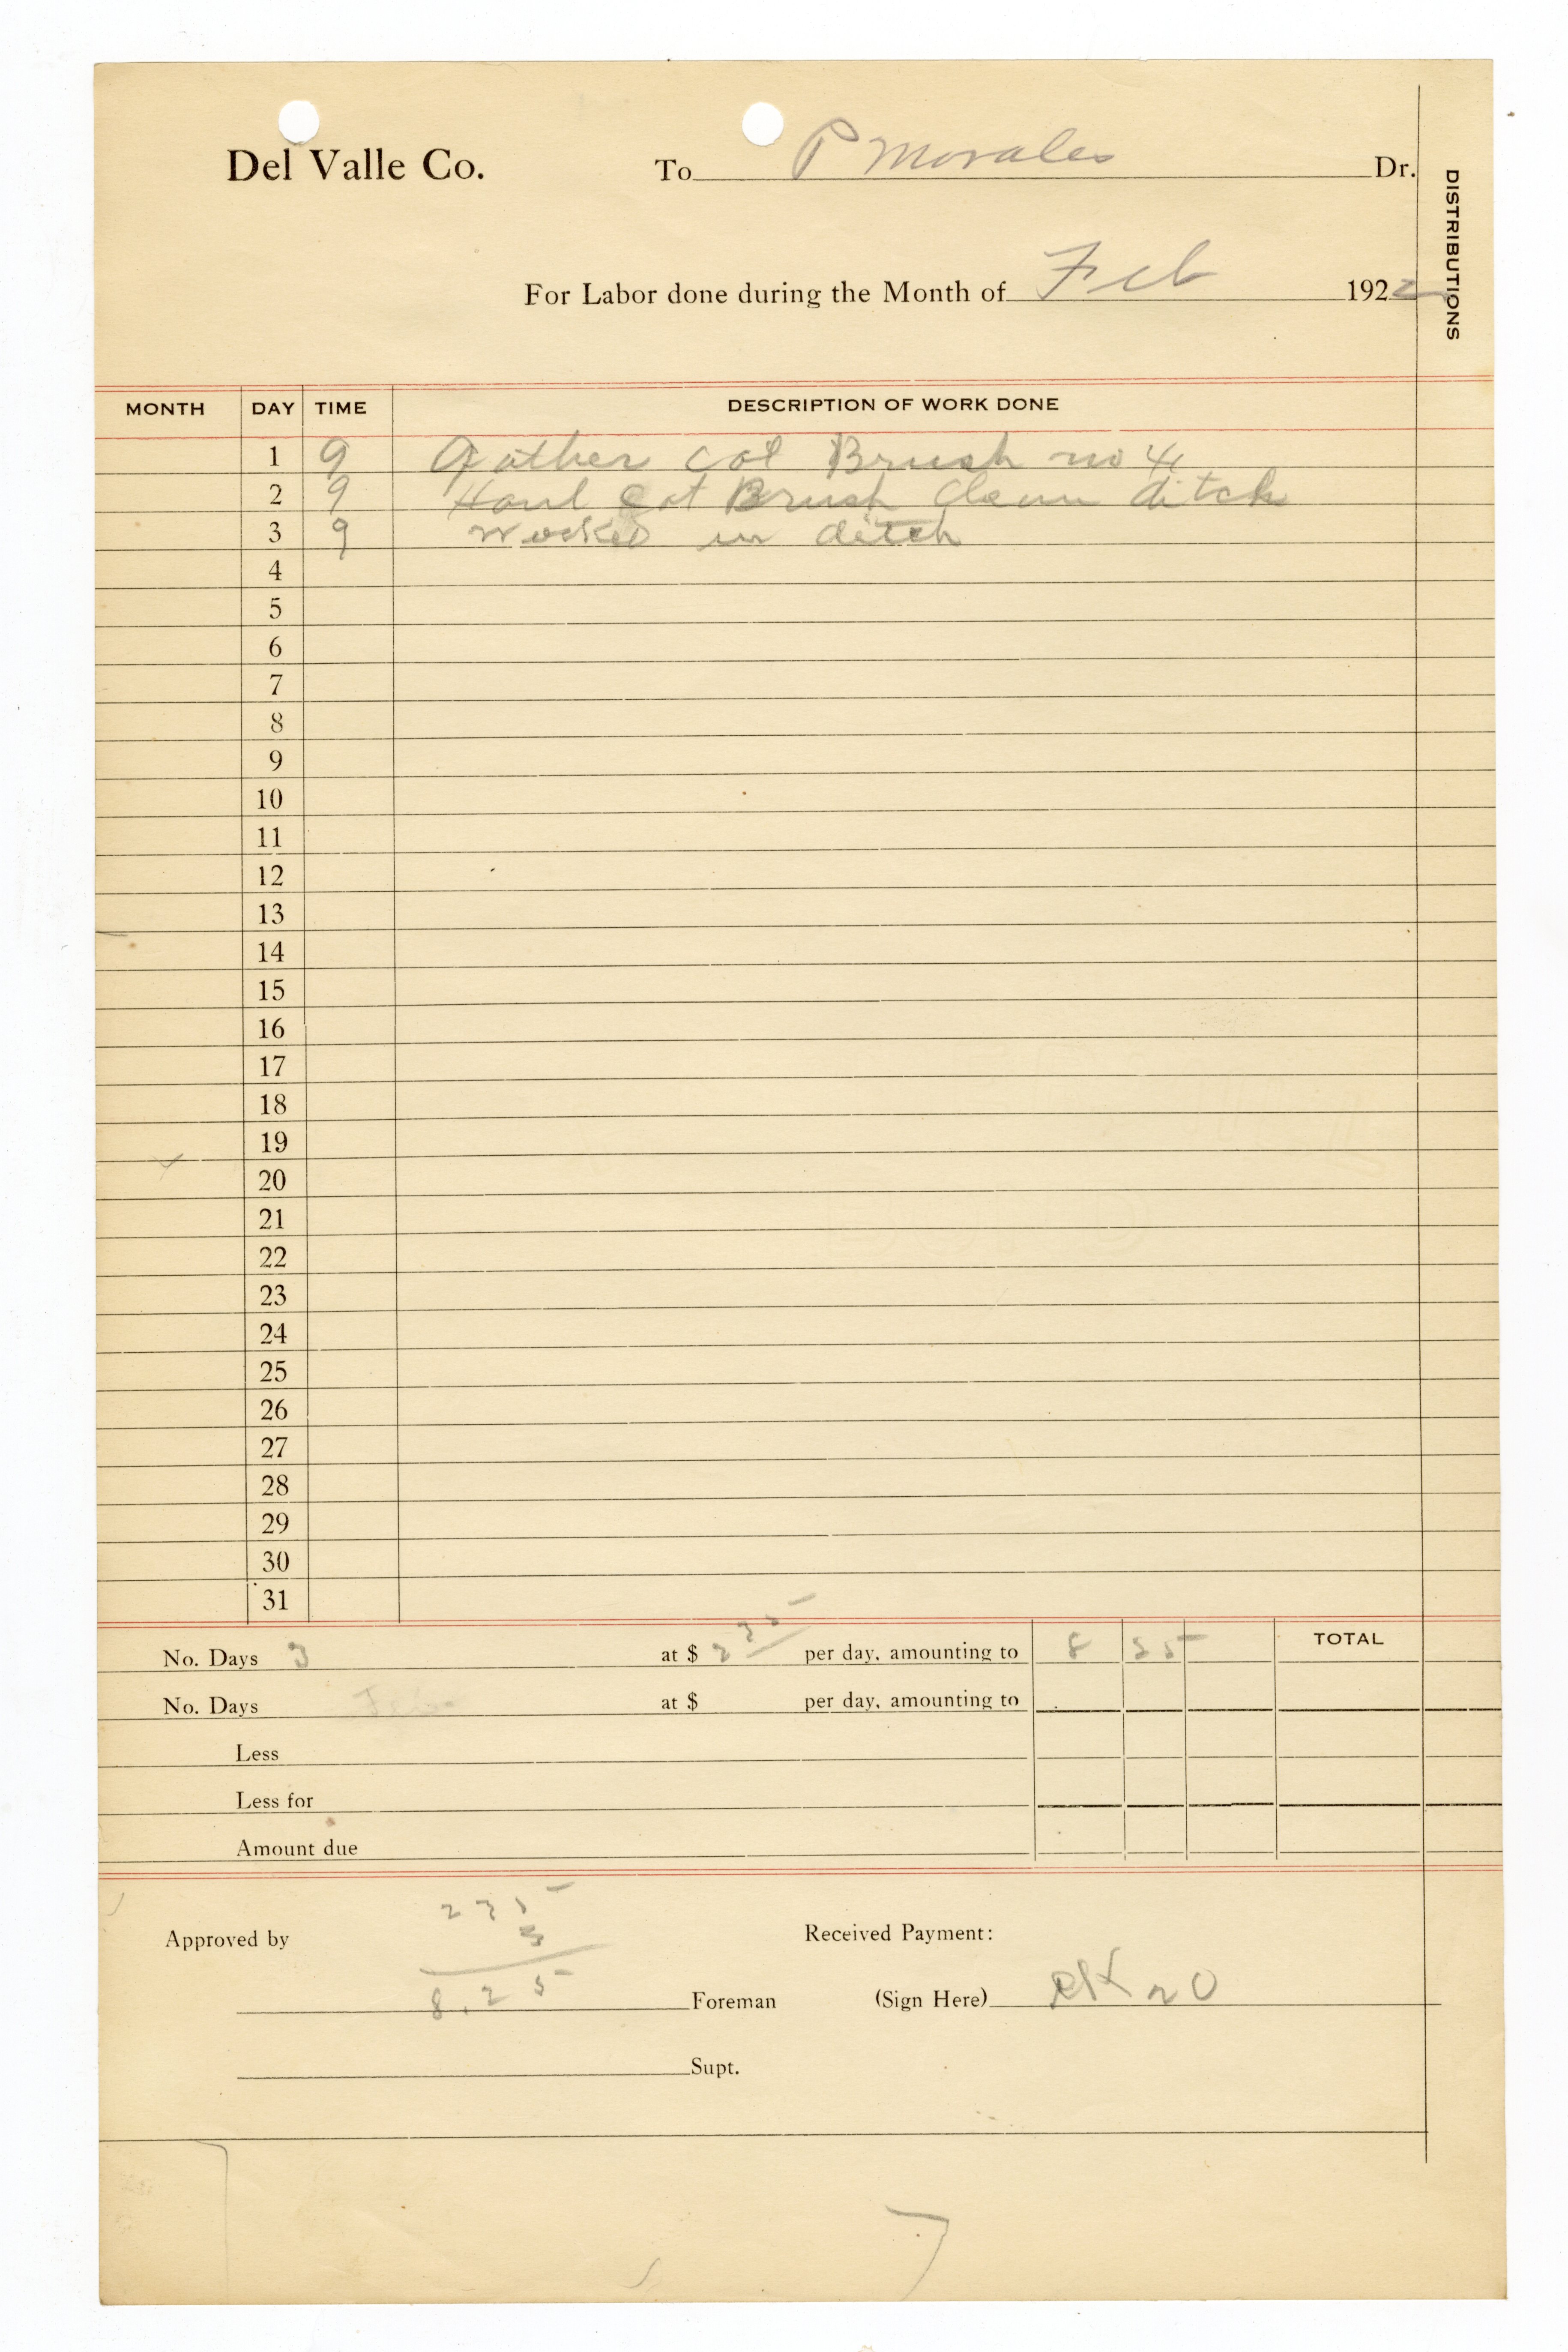 Del Valle Co. To P Morales Dr.
DISTRIBUTIONS
For Labor done during the Month of Feb 1922
MONTH DAY TIME DESCRIPTION OF WORK DONE
1 9 Gather cot Brush no 4
2 9 Haul cot Brush Clean ditch
3 9 Worked in ditch
4
5
6
7
8
9
10
11
12
13
14
15
16
17
18
19
20
21
22
23
24
25
26
27
28
29
30
31
No. Days 3 at $ 2 75 per day, amounting to 8 25 TOTAL
No. Days at $ per day, amounting to
Less
Less for
Amount due
275
3
8.25
Approved by Received Payment:
Foreman (Sign Here)
Supt.